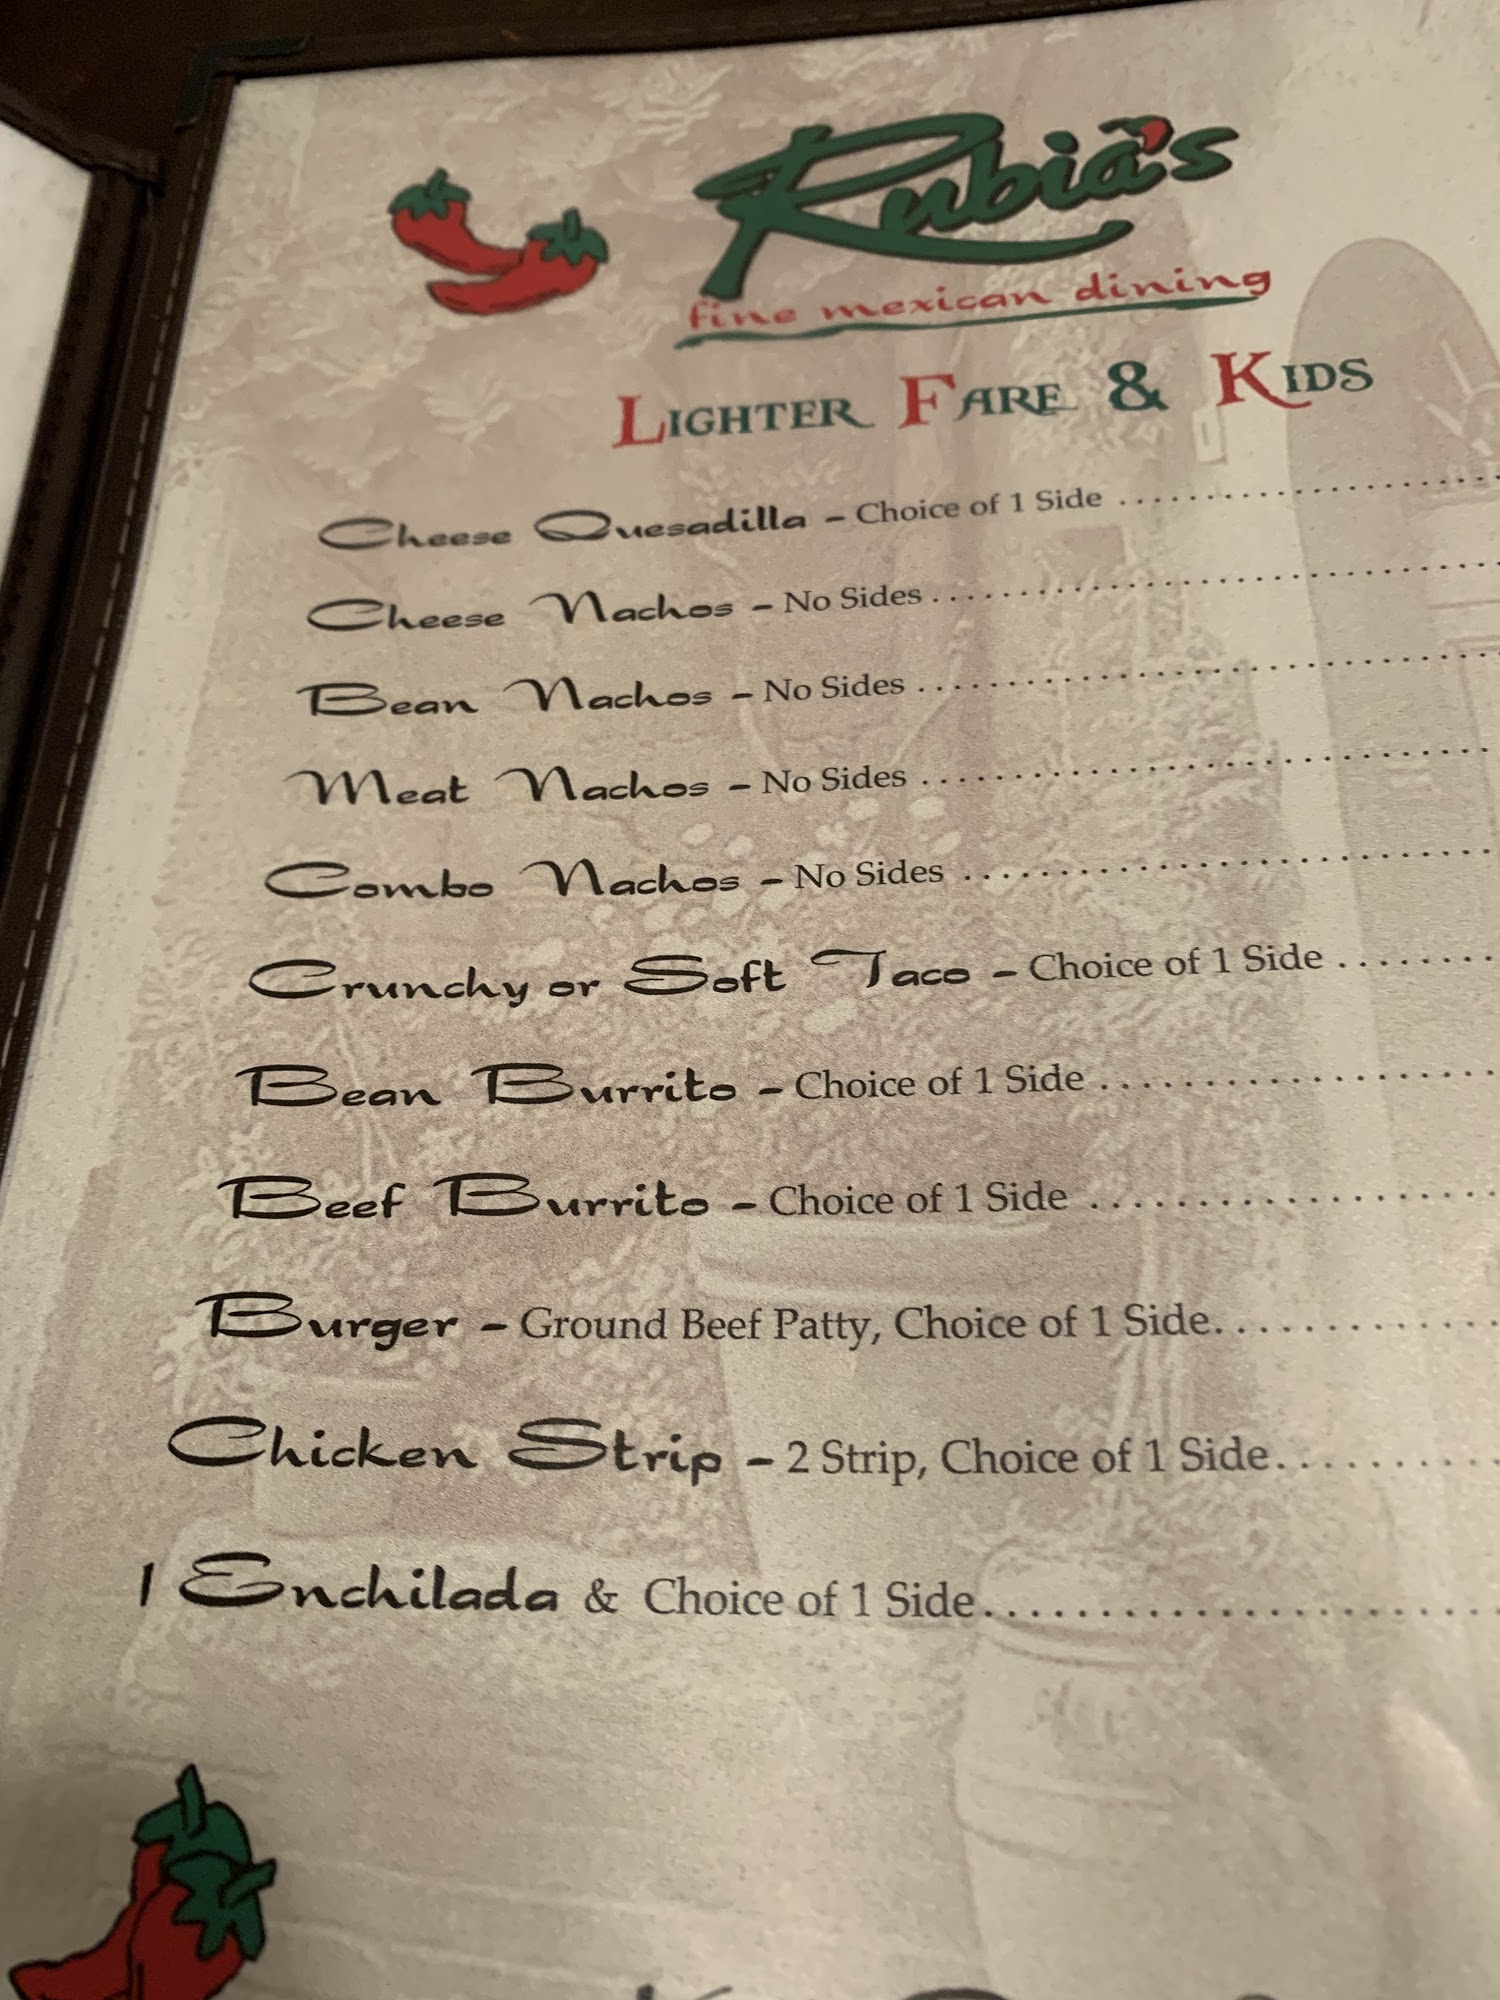 Rubia's
fine mexican dining
Lighter Fare & Kids
Cheese Quesadilla - Choice of 1 Side
Cheese Nachos - No Sides
Bean Nachos - No Sides
Meat Nachos - No Sides
Combo Nachos - No Sides
Crunchy or Soft Taco - Choice of 1 Side
Bean Burrito - Choice of 1 Side
Beef Burrito - Choice of 1 Side
Burger - Ground Beef Patty, Choice of 1 Side
Chicken Strip - 2 Strip, Choice of 1 Side
1 Enchilada & Choice of 1 Side